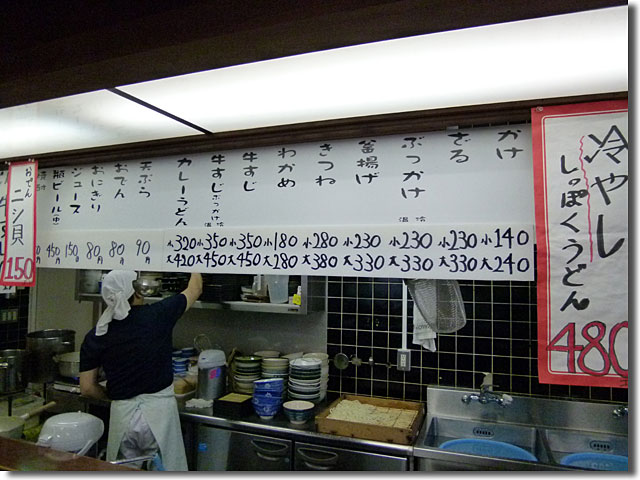 冷やし
しっぽくうどん
480
かけ
小140
大240
ざる
小230
大330
ぶっかけ
温 冷
小230
大330
釜揚げ
小230
大330
きつね
小280
大380
わかめ
小180
大280
牛すじ
小350
大450
牛すじぶっかけ
温 冷
小350
大450
カレーうどん
小320
大420
天ぷら
90円
おでん
80円
おにぎり
80円
ジュース
150円
瓶ビール(中)
450円
おでん
ニシ貝
150